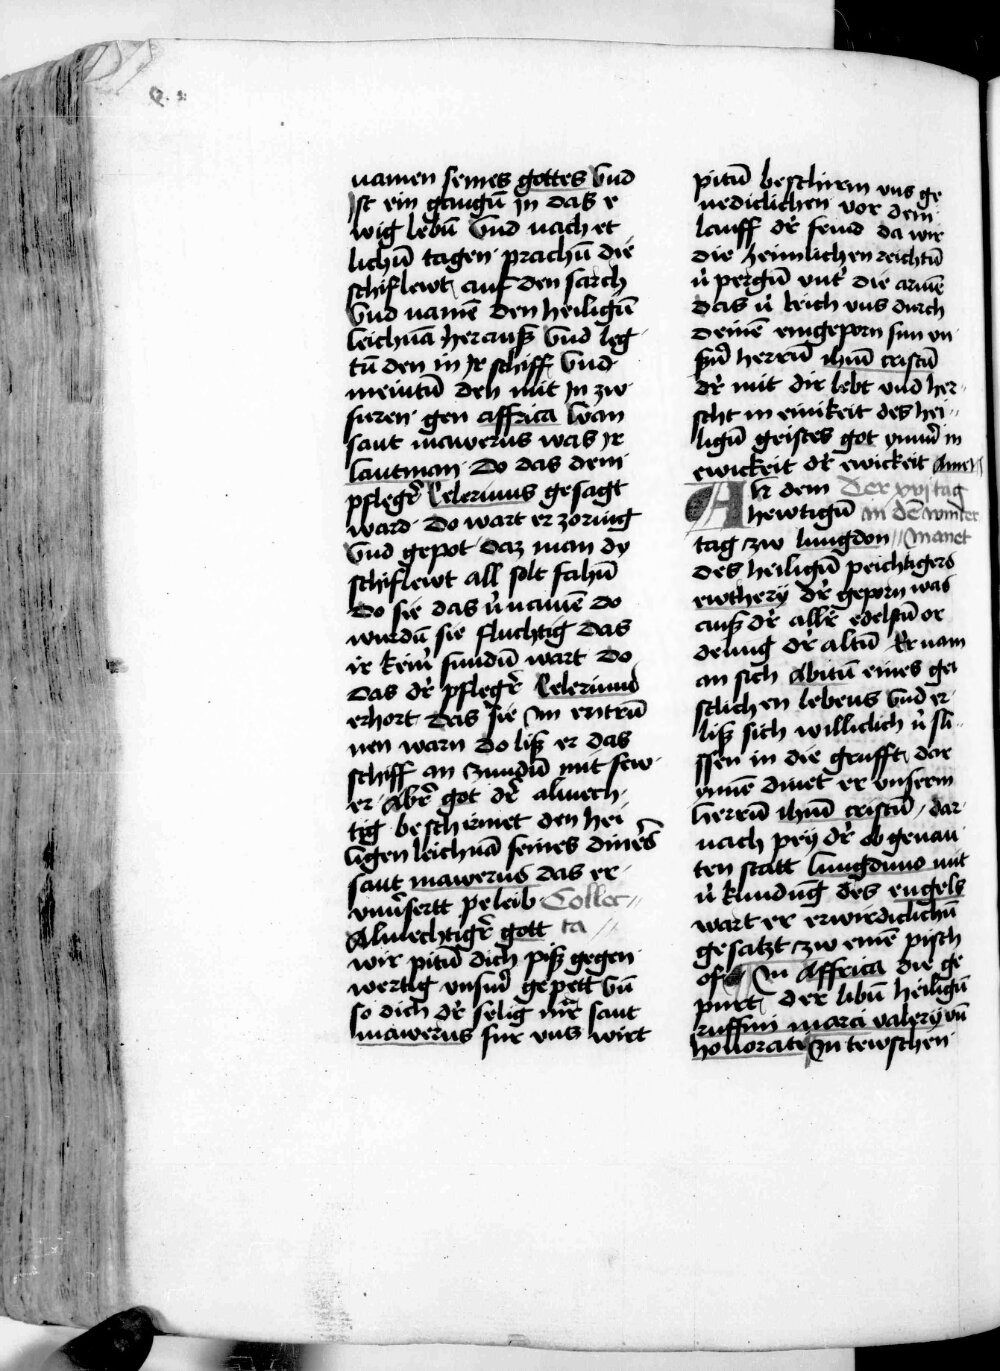 namen seines gottes Vnd
ist ein gangū in das e
wig lebū Vnd nach et
lichū tagen prachū die
schiflewt auf den sarch
Vnd namē den heiligē
leichnā herauß Vnd leg
tū den in Jr schiff Vnd
meintū den mit In zw
furen gen affrica wan
sant mawerus was Jr
lantman Do das dem
pflegr̄ Celerinus gesagt
ward Do wart er zornig
Vnd gepot daz man dy
schiflewt all solt fahū
Do sie das v̓namē do
wurdū sie fluchtig das
ir kein̓ fundū wart Do
das dr̓ pflegr̓ Celerinus
erhort das sie Im entrū
nen warn Do liß er das
schiff an zundū mit few
er Abr̓ got dr̓ almech
tig beschirmet den hei
ligen leichnā seines diners
sant mawerus das er
vnu̓sertt peleib Collec
Almechtigr̓ gott ta
wir pitū dich piß gegen
wertig vnsm̄ gepett vū
so dich dr̓ selig mr̄ sant
mawerus fur vns wirt
pitū beschirm vns ge
nediclichen vor dem
lauff dr̓ feind da wir
die heimlichen reichtū
v̓pergū vnt̓ die armē
das v̓leich vns durch
deinē eingeporn sun vn
ßm̄ herrū ihm̄ cristū
dr̓ mit dir lebt vnd her
scht in einikeit des hei
ligū geistes got ymm̄ in
ewickeit dr̓ ewickeit Amen
An dem Der xvi tag
hewtigū in dē winter
tag zw lungdon manet
des heiligū peichtigers
ewthery dr̓ geporn was
auß dr̓ allr̄ edelstū or
denug dr̓ altū Er nam
an sich Abitū eines gei
stlichen lebens Vnd er
liß sich williclich v̓sli
ssen in die grufft dar
ynnē dinet er vnserm
herrū ihm̄ cristū dar
nach pey dr̓ ob genan
ten statt lungduno mit
v̓kundug des engels
wart er erwirdiclichū
gesatzt zw einē pisch
of In Affrica die ge
purt der libū heiligū
ruffini marci valery vū
honorate In tewschen